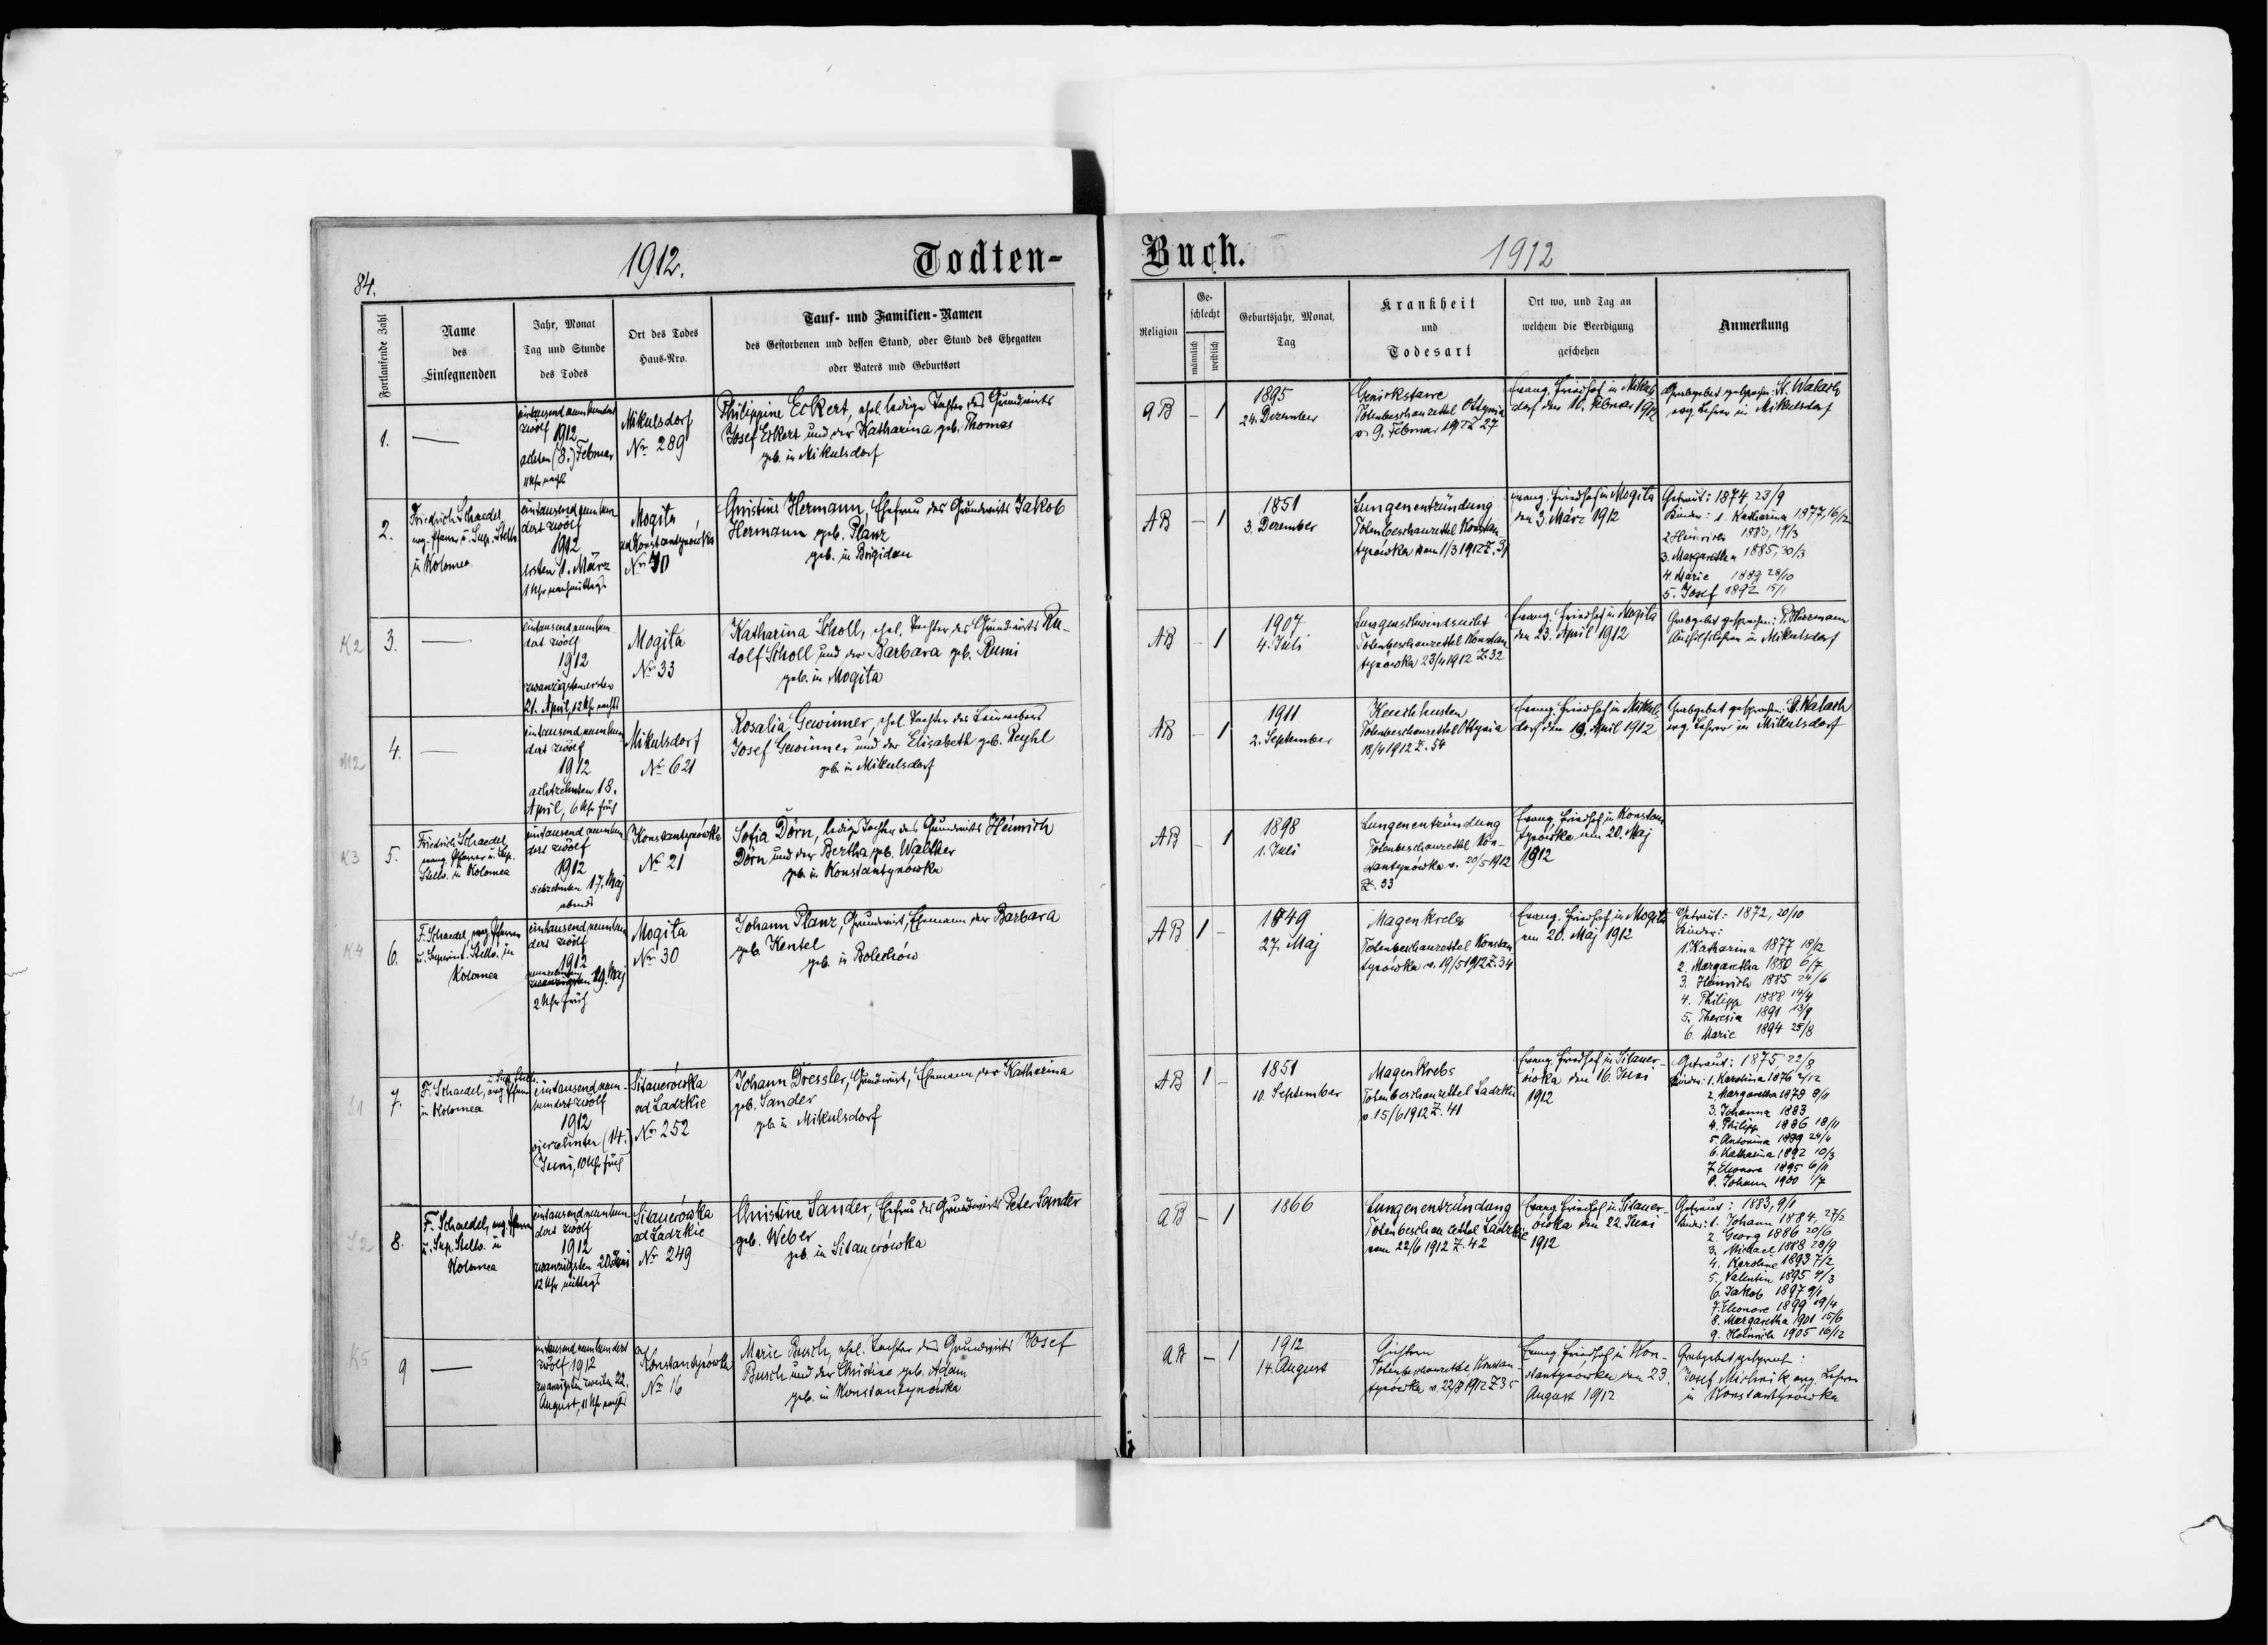 84.
1912.
Todten-
Fortlaufende Zahl
Name
des
Einsegnenden
Jahr, Monat
Tag und Stunde
des Todes
Ort des Todes
Haus-Nro.
Tauf- und Familien-Namen
des Gestorbenen und dessen Stand, oder Stand des Ehegatten
oder Vaters und Geburtsort
1.
—
eintausend neunhundert
zwölf
1912
achten (8.) Februar
11 Uhr nachts
Mikulsdorf
No 289
Philippine Eckert, ehel. ledige Tochter des Grundwirts
Josef Eckert und der Katharina geb. Thomas
geb. in Mikulsdorf
2.
Friedrich Schaedel
evg. Pfarrer u. Sup. Stellv.
in Kolomea
eintausend neunhun
dert zwölf
1912
ersten 1. März
1 Uhr nachmittags
Mogila
ad Konstantynówka
No 10
Christine Hermann, Ehefrau des Grundwirts Jakob
Hermann geb. Planz
geb. in Brigidau
K2
3.
—
eintausend neunhun
dert zwölf
1912
zwanzigsten ersten
21. April, 12 Uhr nachts
Mogila
No 33
Katharina Scholl, ehel. Tochter des Grundwirts Ru-
dolf Scholl und der Barbara geb. Rumi
geb. in Mogila
M2
4.
—
eintausend neunhun
dert zwölf
1912
achtzehnten 18.
April, 6 Uhr früh
Mikulsdorf
No 621
Rosalia Gewinner, ehel. Tochter des
Josef Gewinner und der Elisabeth geb. Reyhl
geb. in Mikulsdorf
K3
5.
Friedrich Schaedel
evang. Pfarrer u. Sup.
Stellv. in Kolomea
eintausend neunhun
dert zwölf
1912
siebzehnten 17. Maj
abends
Konstantynówka
No 21
Sofia Dörn, ledige Tochter des Grundwirts Heinrich
Dörn und der Bertha geb. Walther
geb. in Konstantynówka
K4
6.
F. Schaedel, evg. Pfarrer
u. Superint. Stellv. in
Kolomea
eintausend neunhun
dert zwölf
1912
neunzehnten
19. Maj
2 Uhr früh
Mogila
No 30
Johann Planz, Grundwirt, Ehemann der Barbara
geb. Kentel
geb. in Bolechów
S1
7.
u. Sup. Stellv.
F. Schaedel, evg. Pfarrer
in Kolomea
eintausend neun-
hundert zwölf
1912
vierzehnten (14.)
Juni, 10 Uhr früh
Sitauerówka
ad Ladzkie
No 252
Johann Dressler, Grundwirt, Ehemann der Katharina
geb. Sander
geb. in Mikulsdorf
S2
8.
F. Schaedel, evg. Pfarrer
u. Sup. Stellv. in
Kolomea
eintausend neunhun
dert zwölf
1912
zwanzigsten 20. Juni
12 Uhr mittags
Sitauerówka
ad Ladzkie
No 249
Christine Sander, Ehefrau des Grundwirts Peter Sander
geb. Weber
geb. in Sitauerówka
K5
9
—
eintausend neunhundert
zwölf 1912
zwanzigsten zweiten 22.
August, 11 Uhr nachts
Konstantynówka
No 16
Marie Busch, ehel. Tochter des Grundwirts Josef
Busch und der Christine geb. Adam
geb. in Konstantynówka
Buch.
1912
Religion
Ge-
schlecht
männlich
weiblich
Geburtsjahr, Monat,
Tag
Krankheit
und
Todesart
Ort wo, und Tag an
welchem die Beerdigung
geschehen
Anmerkung
AB
–
1
1895
24. Dezember
Genickstarre
Totenbeschauzettel Ottynia
v. 9. Februar 1912 Z 27
Evang. Friedhof in Mikuls
dorf den 10. Februar 1912
Grabgebet gesprochen: St. Walach
evg. Lehrer in Mikulsdorf
AB
–
1
1851
3. Dezember
Lungenentzündung
Totenbeschauzettel Konstan
tynówka vom 1/3 1912 Z. 31
Evang. Friedhof in Mogila
den 3. März 1912
Getraut: 1874 23/9
Kinder: 1. Katharina 1877, 16/12
2. Heinrich 1883, 19/3
3. Margaretha 1885, 30/3
4. Marie 1889 28/10
5. Josef 1892 15/1
AB
–
1
1907
4. Juli
Lungenschwindsucht
Totenbeschauzettel Konstan
tynówka 23/4 1912 Z. 32
Evang. Friedhof in Mogila
den 23. April 1912
Grabgebet gesprochen: P. Herrmann
Aushilfslehrer in Mikulsdorf
AB
–
1
1911
2. September
Keuchhusten
Totenbeschauzettel Ottynia
18/4 1912 Z. 54
Evang. Friedhof in Mikuls
dorf den 19. April 1912
Grabgebet gesprochen: St. Walach
evg. Lehrer in Mikulsdorf
AB
–
1
1898
1. Juli
Lungenentzündung
Totenbeschauzettel Kon-
stantynówka v. 20/5 1912
Z. 33
Evang. Friedhof in Konstan
tynówka am 20. Maj
1912
AB
1
–
1849
27. Maj
Magenkrebs
Totenbeschauzettel Konstan
tynówka v. 19/5 1912 Z. 34
Evang. Friedhof in Mogila
am 20. Maj 1912
Getraut: 1872, 20/10
Kinder:
1. Katharina 1877 18/2
2. Margaretha 1880 6/7
3. Heinrich 1885 24/6
4. Philipp 1888 14/4
5. Theresia 1891 23/9
6. Marie 1894 25/8
AB
1
–
1851
10. September
Magenkrebs
Totenbeschauzettel Ladzkie
v. 15/6 1912 Z. 41
Evang. Friedhof in Sitauer-
ówka den 16. Juni
1912
Getraut: 1875, 22/8
Kinder: 1. Karolina 1876 2/12
2. Margaretha 1879 8/11
3. Johanna 1883
4. Philipp 1886 18/11
5. Antonina 1889 24/4
6. Katharina 1892 10/3
7. Eleonore 1895 6/11
8. Johann 1900 1/7
AB
–
1
1866
Lungenentzündung
Totenbeschauzettel Ladzkie
vom 22/6 1912 Z. 42
Evang. Friedhof in Sitauer-
ówka den 22. Juni
1912
Getraut: 1883, 9/1
Kinder: 1. Johann 1884, 27/2
2. Georg 1886 20/6
3. Michael 1888 28/9
4. Karoline 1893 7/2
5. Valentin 1895 4/3
6. Jakob 1897 9/1
7. Eleonore 1899 19/4
8. Margaretha 1901 15/6
9. Heinrich 1905 16/12
AB
–
1
1912
14. August
Totenbeschauzettel Konstan
tynówka v. 22/8 1912 Z 35
Evang. Friedhof in Kon-
stantynówka den 23.
August 1912
Josef Michnik evg. Lehrer
in Konstantynówka